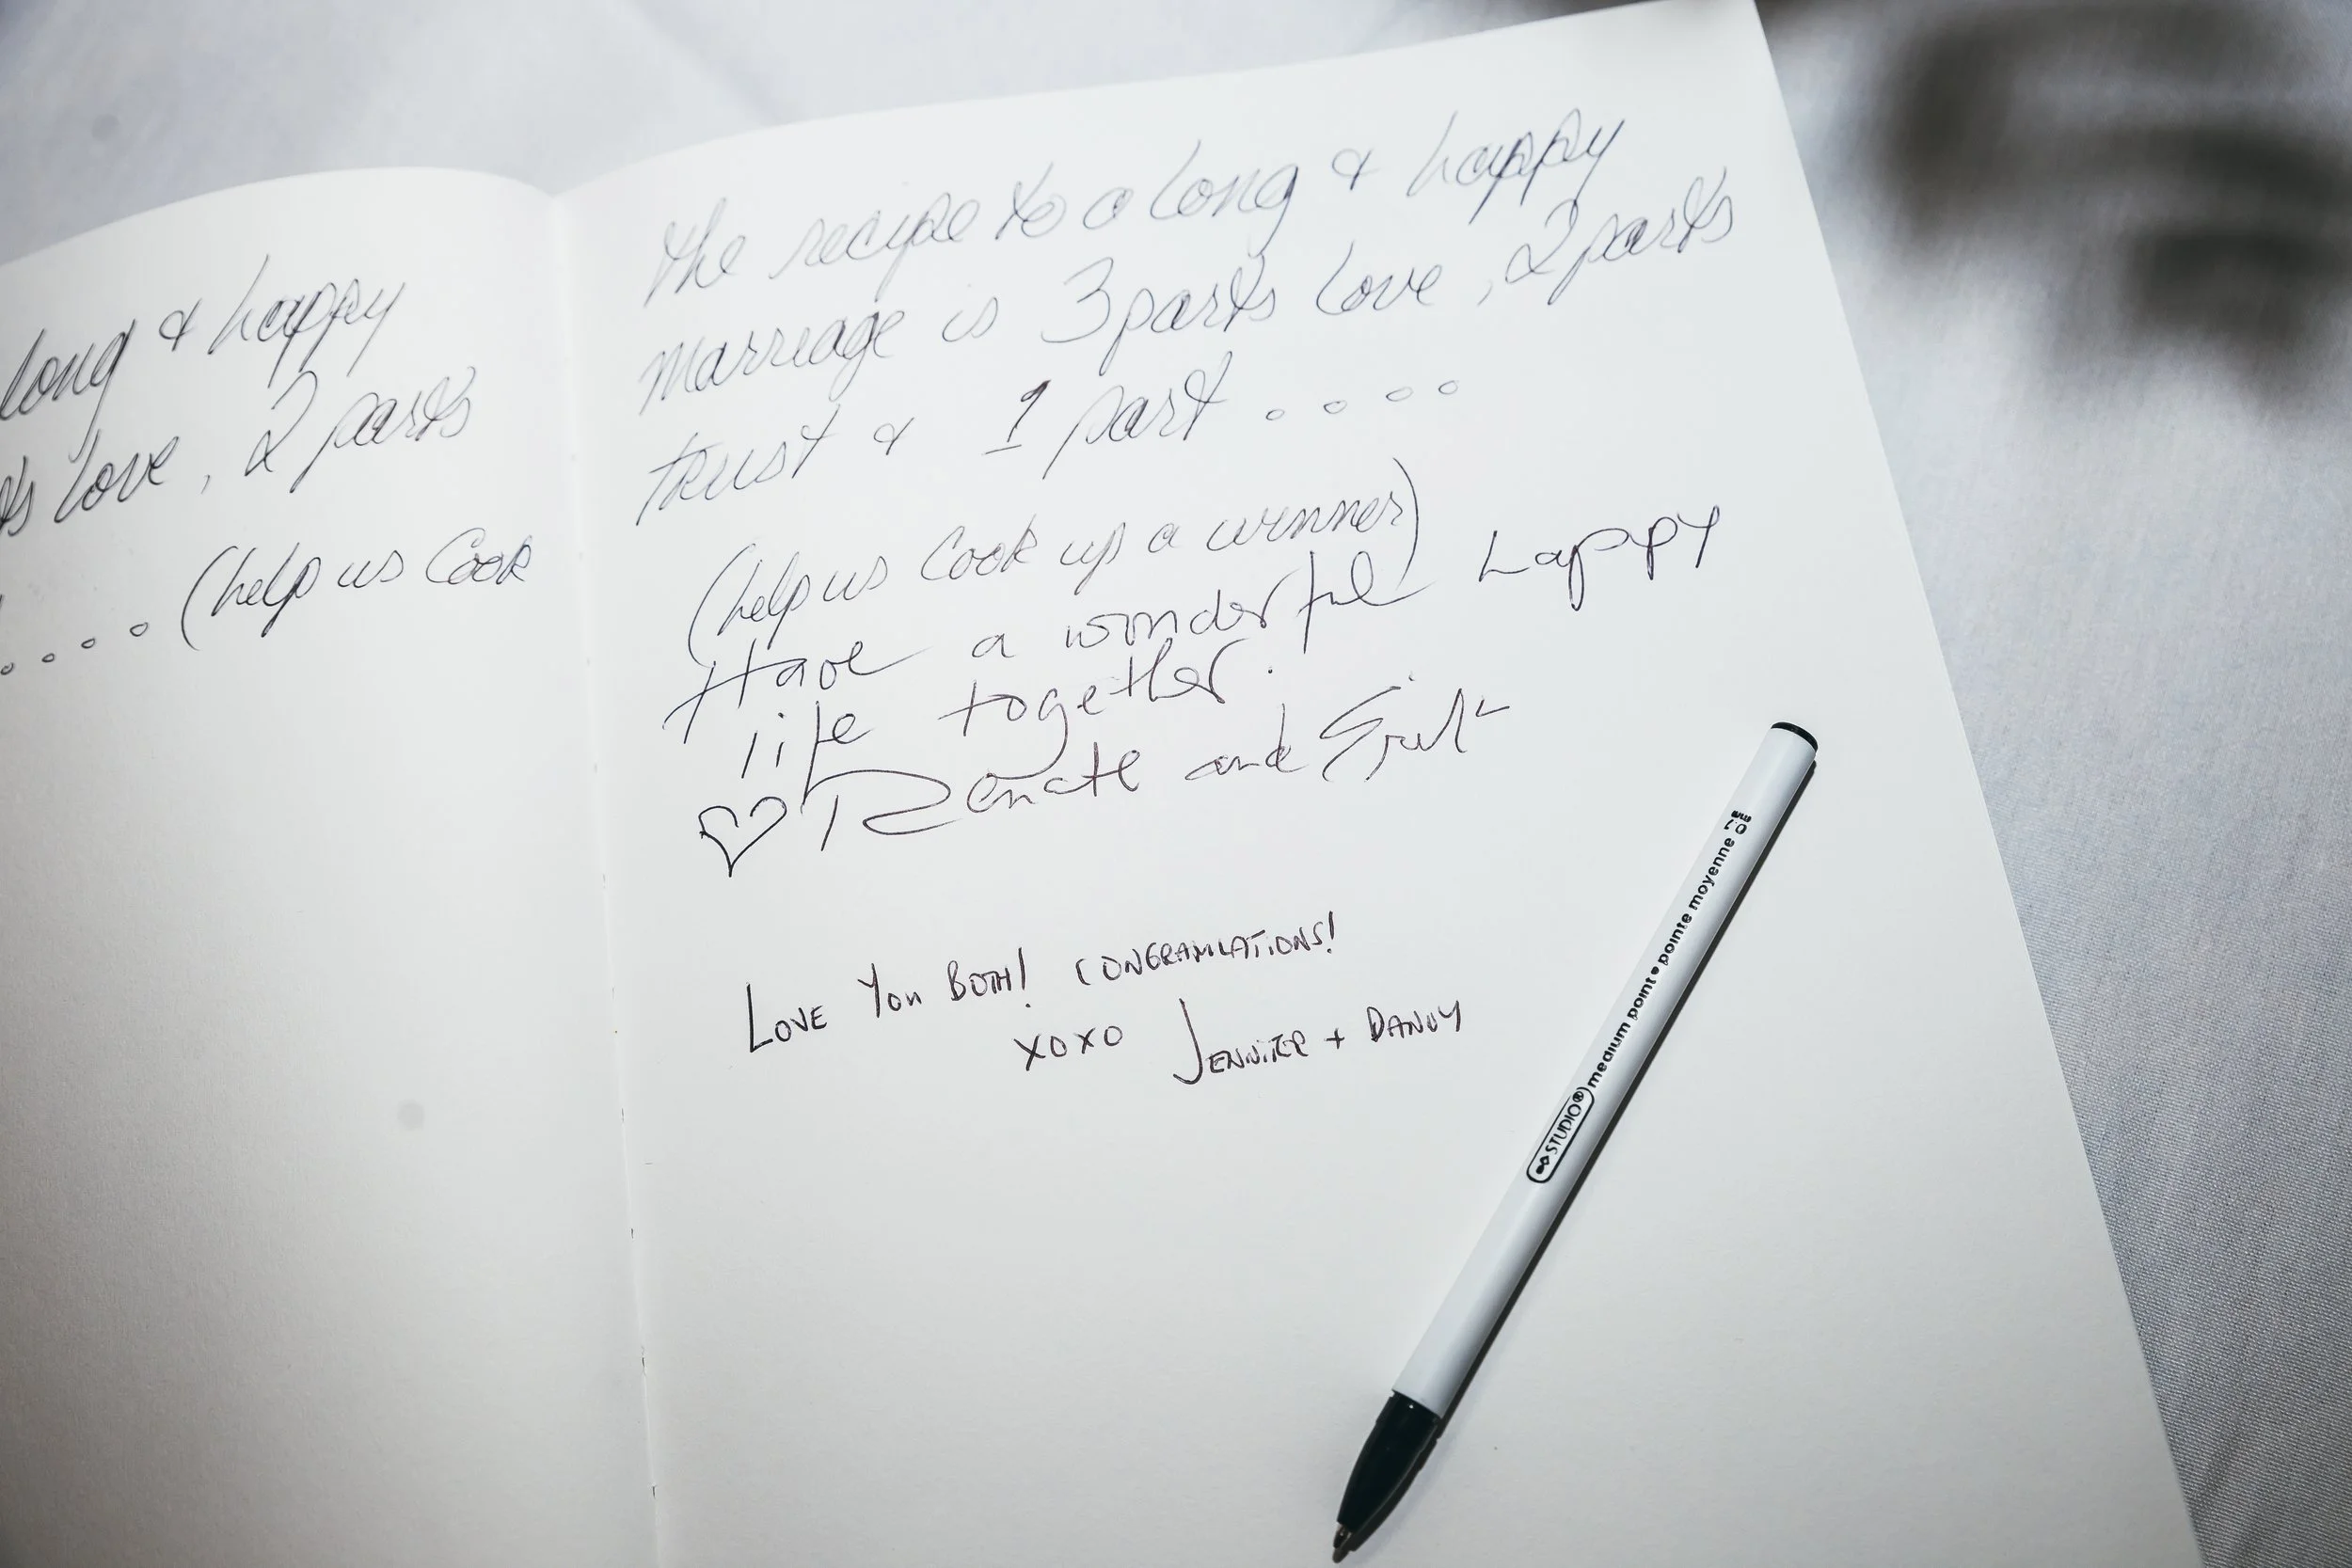 long & happy
ts Love, 2 parts
.... (help us Cook
The recipe to a long & happy
Marriage is 3 parts Love, 2 parts
trust & 1 part ....
(help us Cook up a winner)
Have a wonderful happy
life together.
♡ Renate and
LOVE YOU BOTH! CONGRATULATIONS!
XOXO JENNIFER + DANNY
STUDIO® medium point•pointe moyenne